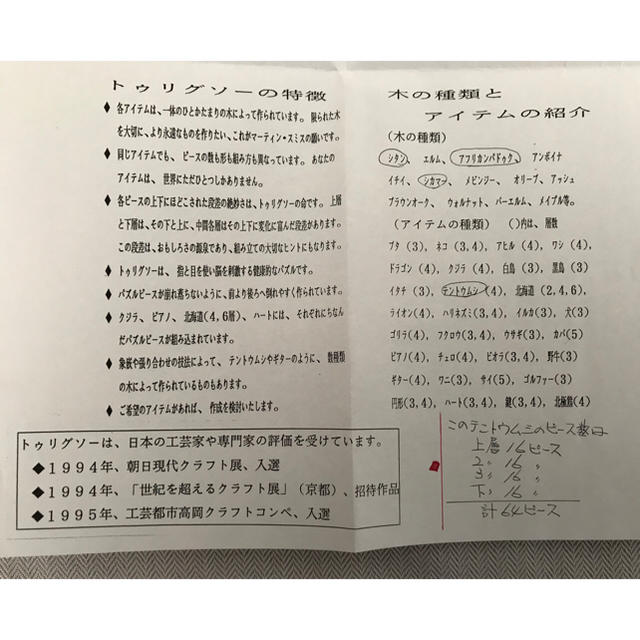 トゥリグソーの特徴
♦ 各アイテムは、一体のひとかたまりの木によって作られています。限られた木
を大切に、より永遠なものを作りたい、これがマーティン・スミスの願いです。
♦ 同じアイテムでも、ピースの数も形も組み方も異なっています。あなたの
アイテムは、世界にただひとつしかありません。
♦ 各ピースの上下にほどこされた段差の絶妙さは、トゥリグソーの命です。上層
と下層は、その下と上に、中間各層はその上下に変化に富んだ段差があります。
この段差は、おもしろさの源泉であり、組み立ての大切なヒントにもなります。
♦ トゥリグソーは、指と目を使い脳を刺激する健康的なパズルです。
♦ パズルピースが崩れ落ちないように、前より後ろへ倒れやすく作られています。
♦ クジラ、ピアノ、北海道(4,6層)、ハートには、それぞれにちなん
だパズルピースが組み込まれています。
♦ 象嵌や張り合わせの技法によって、テントウムシやギターのように、数種類
の木によって作られているものもあります。
♦ ご希望のアイテムがあれば、作成を検討いたします。
トゥリグソーは、日本の工芸家や専門家の評価を受けています。
◆1994年、朝日現代クラフト展、入選
◆1994年、「世紀を超えるクラフト展」(京都)、招待作品
◆1995年、工芸都市高岡クラフトコンペ、入選
木の種類と
アイテムの紹介
(木の種類)
シタン、エルム、アフリカンパドゥク、アンボイナ
イチイ、シカマー、メピンジー、オリーブ、アッシュ
ブラウンオーク、ウォルナット、バーエルム、メイプル等。
(アイテムの種類) ()内は、層数
ブタ(3)、ネコ(3,4)、アヒル(4)、ワシ(4)、
ドラゴン(4)、クジラ(4)、白鳥(3)、黒鳥(3)
イタチ(3)、テントウムシ(4)、北海道(2,4,6)、
ライオン(4)、ハリネズミ(3,4)、イルカ(3)、犬(3)
ゴリラ(4)、フクロウ(3,4)、ウサギ(3)、カバ(5)
ピアノ(4)、チェロ(4)、ビオラ(3,4)、野牛(3)
ギター(4)、ワニ(3)、サイ(5)、ゴルファー(3)
円形(3,4)、ハート(3,4)、鍵(3,4)、北極熊(4)
このテントウムシのピース数は
上層 16ピース
2〃 16 〃
3〃 16 〃
下〃 16 〃
計 64ピース